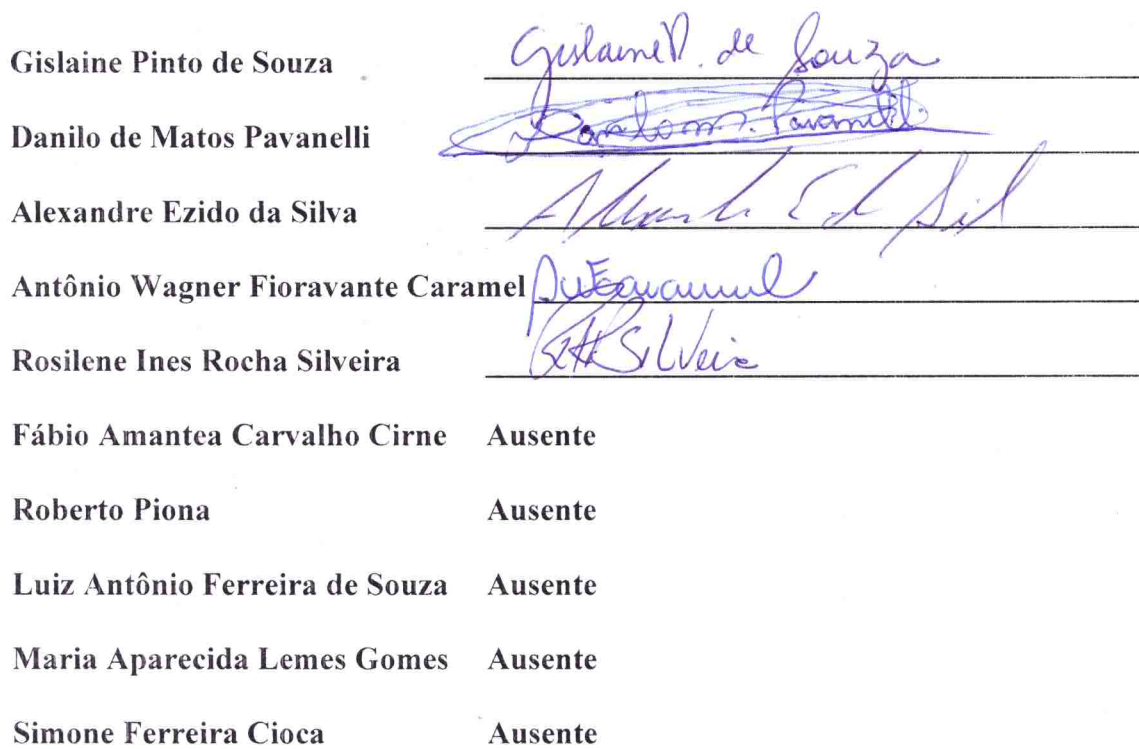 Gislaine Pinto de Souza Gislaine P. de Souza
Danilo de Matos Pavanelli Danilo M. Pavanelli
Alexandre Ezido da Silva
Antônio Wagner Fioravante Caramel
Rosilene Ines Rocha Silveira Silveira
Fábio Amantea Carvalho Cirne Ausente
Roberto Piona Ausente
Luiz Antônio Ferreira de Souza Ausente
Maria Aparecida Lemes Gomes Ausente
Simone Ferreira Cioca Ausente